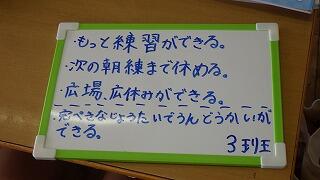 ・もっと練習ができる。
・次の朝練まで休める。
・広場、広休みができる。
・完ぺきなじょうたいでうんどうかいが
できる。
3班